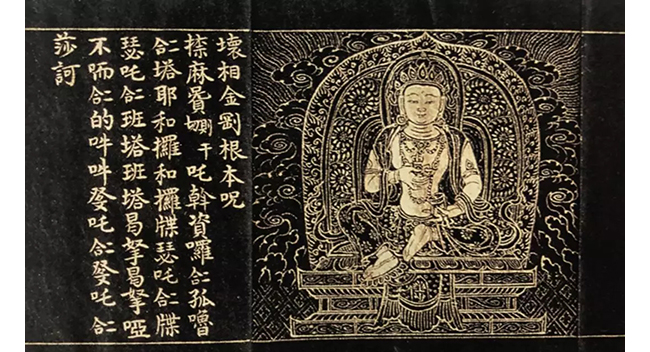 壞相金剛根本呪
捺麻㬋 干吒斡資囉 孤嚕
塔耶和攞和攞牒瑟吒 牒
瑟吒 班塔班塔曷拏曷拏啞
不 的吽吽癹吒 癹吒
莎訶